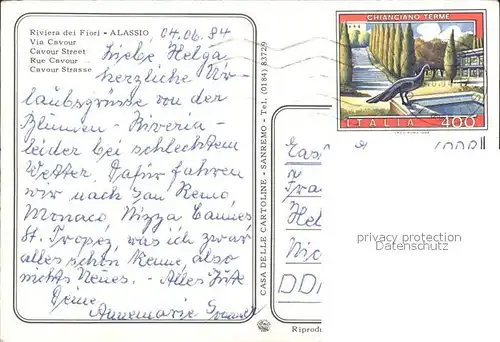 Riviera dei Fiori - ALASSIO
Via Cavour
Cavour Street
Rue Cavour
Cavour Strasse
04.06.84
Liebe Helga
herzliche Ur-
laubsgrüsse von der
Blumen-Riveria-
leider bei schlechtem
Wetter. Dafür fahren
wir nach San Remo,
Monaco, Nizza Cannes,
St. Tropéz, was ich zwar
alles schon kenne, also
nichts Neues. - Alles Gute
Deine
Annemarie
CASA DELLE CARTOLINE - SANREMO - Tel. (0184) 83729
CHIANCIANO TERME
ITALIA 400
Hel
DD
privacy protection
Datenschutz
Riprodu